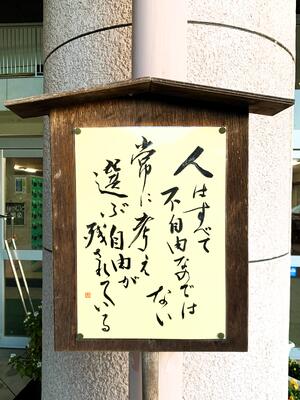 人はすべて
不自由なのでは
ない
常に考え
選ぶ自由が
残されている